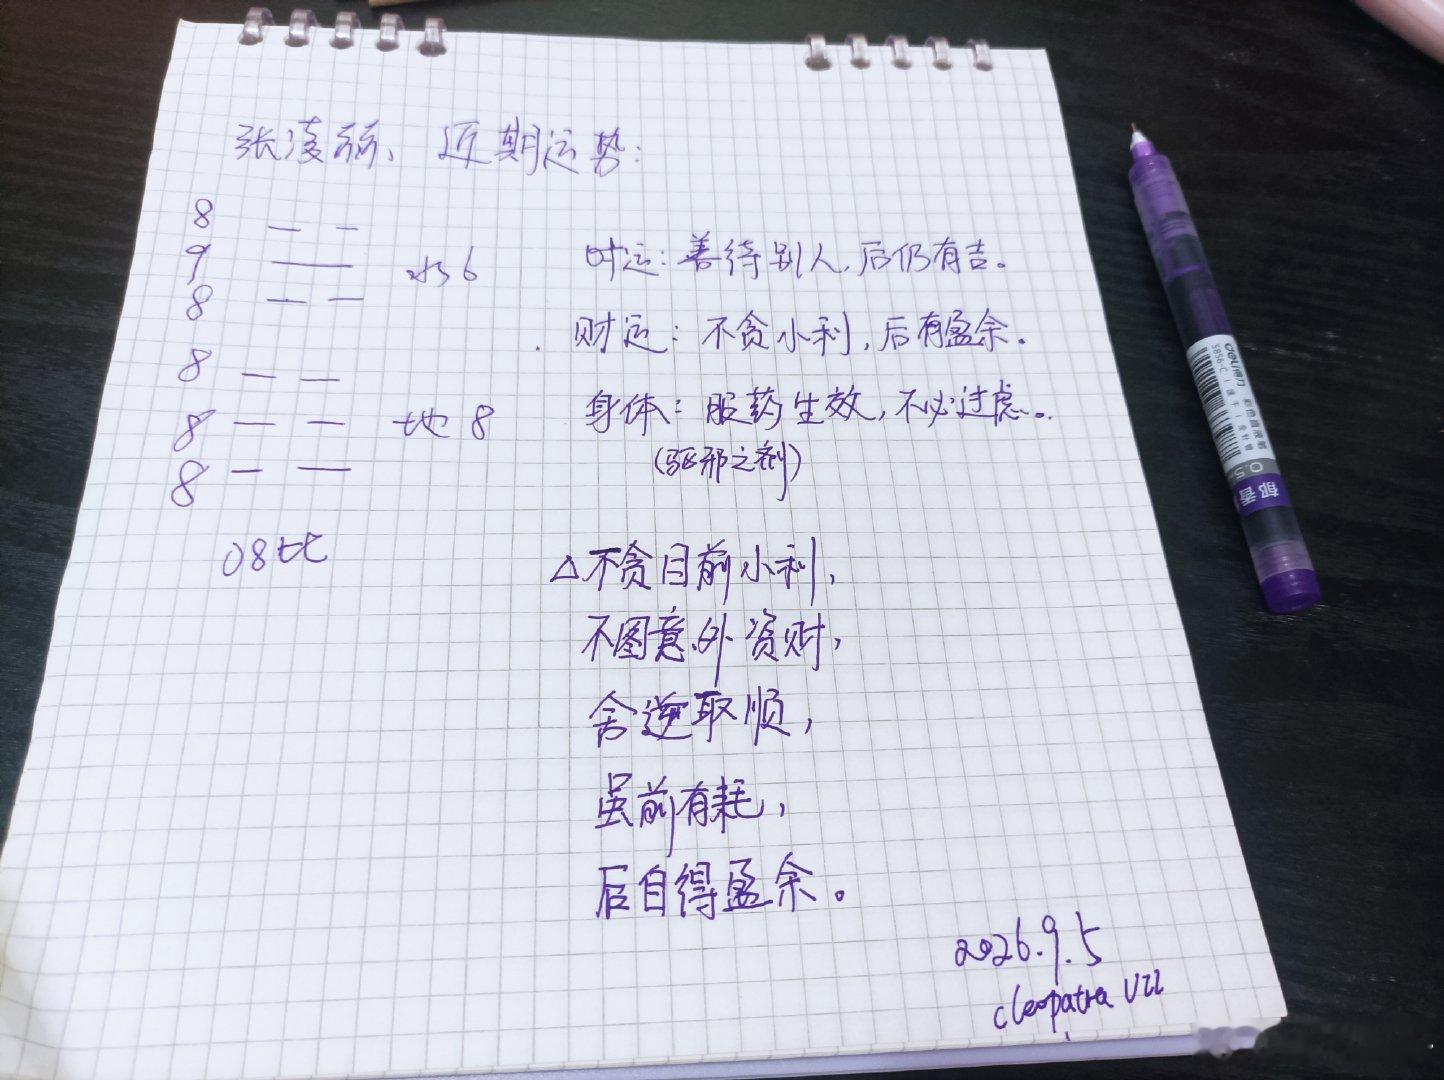 张凌丽、近期运势：
8
9 水6
8
8
8 地8
8
08比
时运：善待别人，后仍有吉。
财运：不贪小利，后有盈余。
身体：服药生效，不必过虑。
（驱邪之剂）
△不贪目前小利，
不图意外资财，
舍逆取顺，
虽前有耗，
后自得盈余。
2026.9.5
cleopatra VII
deli得力
S856-C
彩色直液笔
0.5
郁香